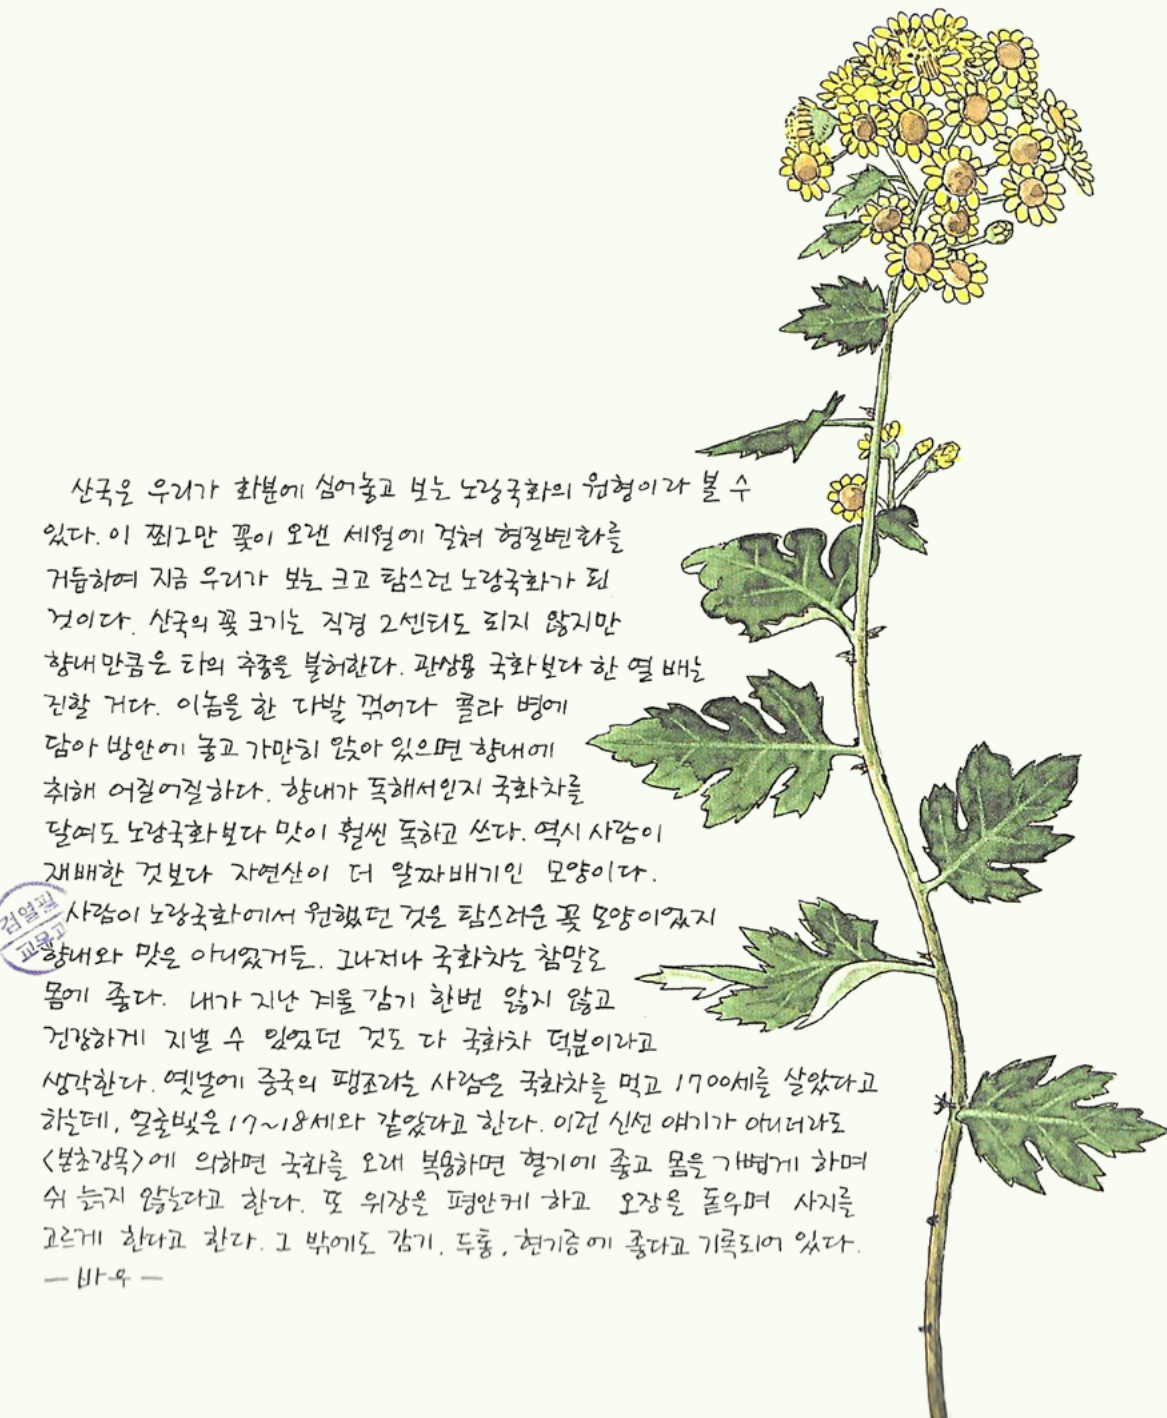 산국은 우리가 화분에 심어놓고 보는 노랑국화의 원형이라 볼 수
있다. 이 쬐그만 꽃이 오랜 세월에 걸쳐 형질변화를
거듭하여 지금 우리가 보는 크고 탐스런 노랑국화가 된
것이다. 산국의 꽃 크기는 직경 2센티도 되지 않지만
향내만큼은 타의 추종을 불허한다. 관상용 국화보다 한 열 배는
진할 거다. 이놈을 한 다발 꺾어다 콜라 병에
담아 방안에 놓고 가만히 앉아 있으면 향내에
취해 어질어질하다. 향내가 독해서인지 국화차를
달여도 노랑국화보다 맛이 훨씬 독하고 쓰다. 역시 사람이
재배한 것보다 자연산이 더 알짜배기인 모양이다.
사람이 노랑국화에서 원했던 것은 탐스러운 꽃 모양이었지
향내와 맛은 아니었거든. 그나저나 국화차는 참말로
몸에 좋다. 내가 지난 겨울 감기 한번 앓지 않고
건강하게 지낼 수 있었던 것도 다 국화차 덕분이라고
생각한다. 옛날에 중국의 팽조라는 사람은 국화차를 먹고 1700세를 살았다고
하는데, 얼굴빛은 17~18세와 같았다고 한다. 이런 신선 얘기가 아니더라도
<본초강목>에 의하면 국화를 오래 복용하면 혈기에 좋고 몸을 가볍게 하며
쉬 늙지 않는다고 한다. 또 위장을 평안케 하고 오장을 돋우며 사지를
고르게 한다고 한다. 그 밖에도 감기, 두통, 현기증에 좋다고 기록되어 있다.
— 바우 —
검열필